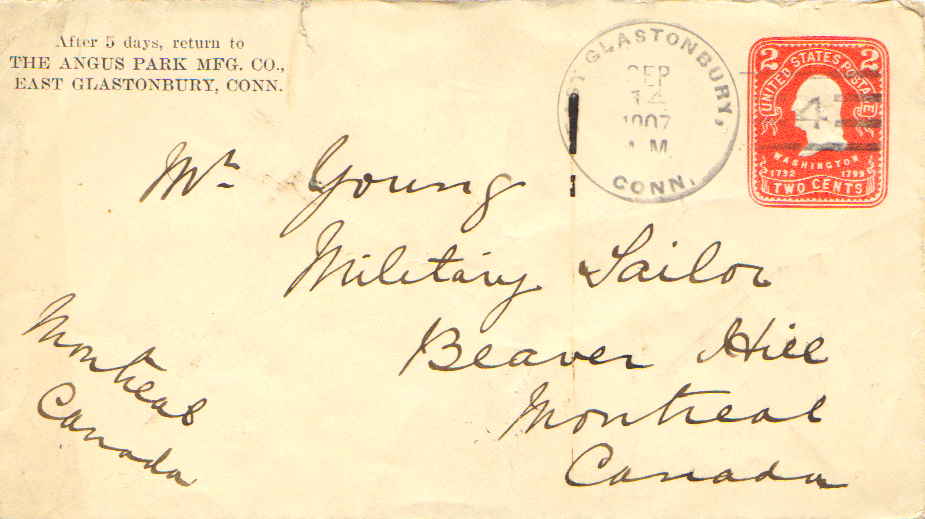 After 5 days, return to
THE ANGUS PARK MFG. CO.,
EAST GLASTONBURY, CONN.
EAST GLASTONBURY,
SEP
14
1907
M
CONN.
2 2
UNITED STATES POSTAGE
4
WASHINGTON
1732 1799
TWO CENTS
Mr. Young
Military Tailor
Beaver Hill
Montreal
Canada
Montreal
Canada